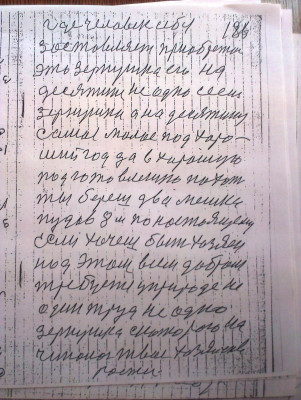 где человек себя 186
заставляет приобрести
это зернушка его на
десятину не одно сеем
зернушки а на десятину
самая малое под харо-
ший год да в харошую
подготовленно пахот
ты береш два мешка
пудов 8 и по настоящему
если хочеш быть хозяен
под этом всем добром
требует у природе не
один труд не одно
зернушка скоторого на
хозяенов
ростом